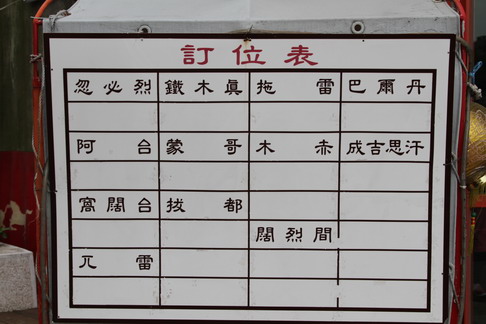 訂位表
忽必烈 鐵木真 拖雷 巴爾丹
阿台 蒙哥 木赤 成吉思汗
窩闊台 拔都
闊烈間
兀雷